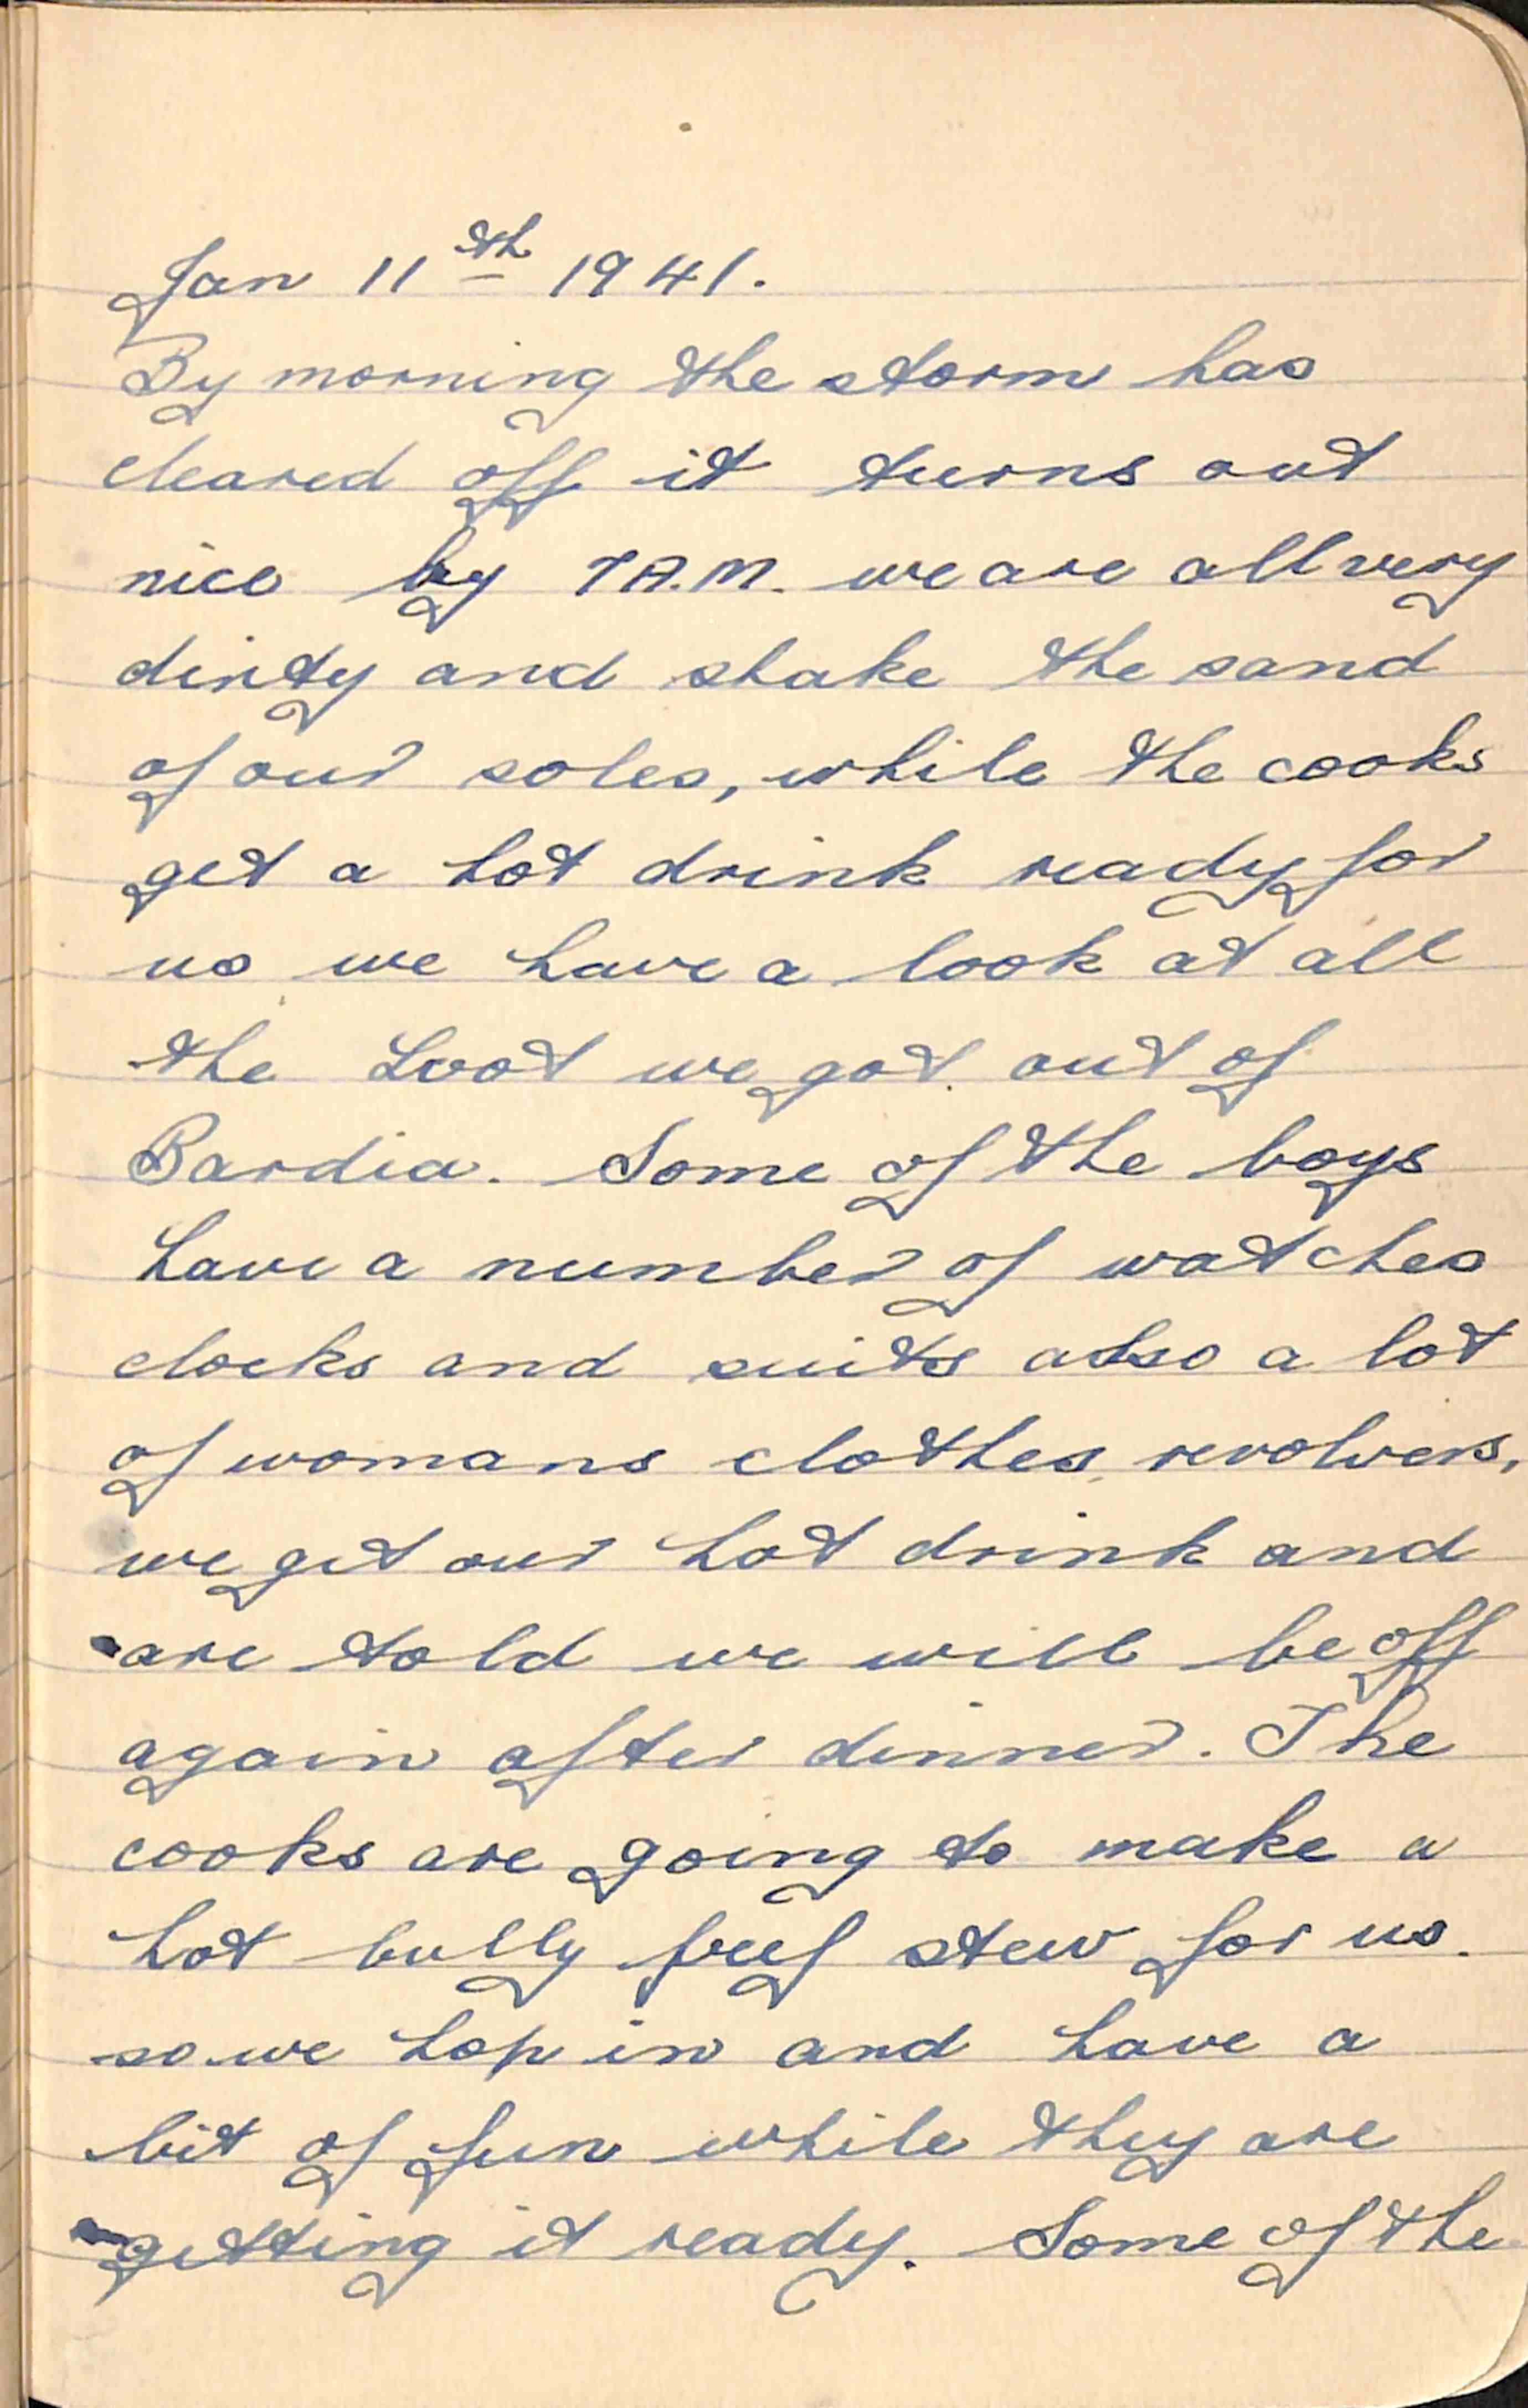 Jan 11th 1941.
By morning the storm has
cleared off it turns out
nice by 7 A.M. we are all very
dirty and shake the sand
of our soles, while the cooks
get a hot drink ready for
us we have a look at all
the Loot we got out of
Bardia. Some of the boys
have a number of watches
clocks and suits also a lot
of womans clothes, revolvers,
we get our hot drink and
are told we will be off
again after dinner. The
cooks are going to make a
hot bully beef stew for us.
so we hop in and have a
bit of fun while they are
getting it ready. Some of the